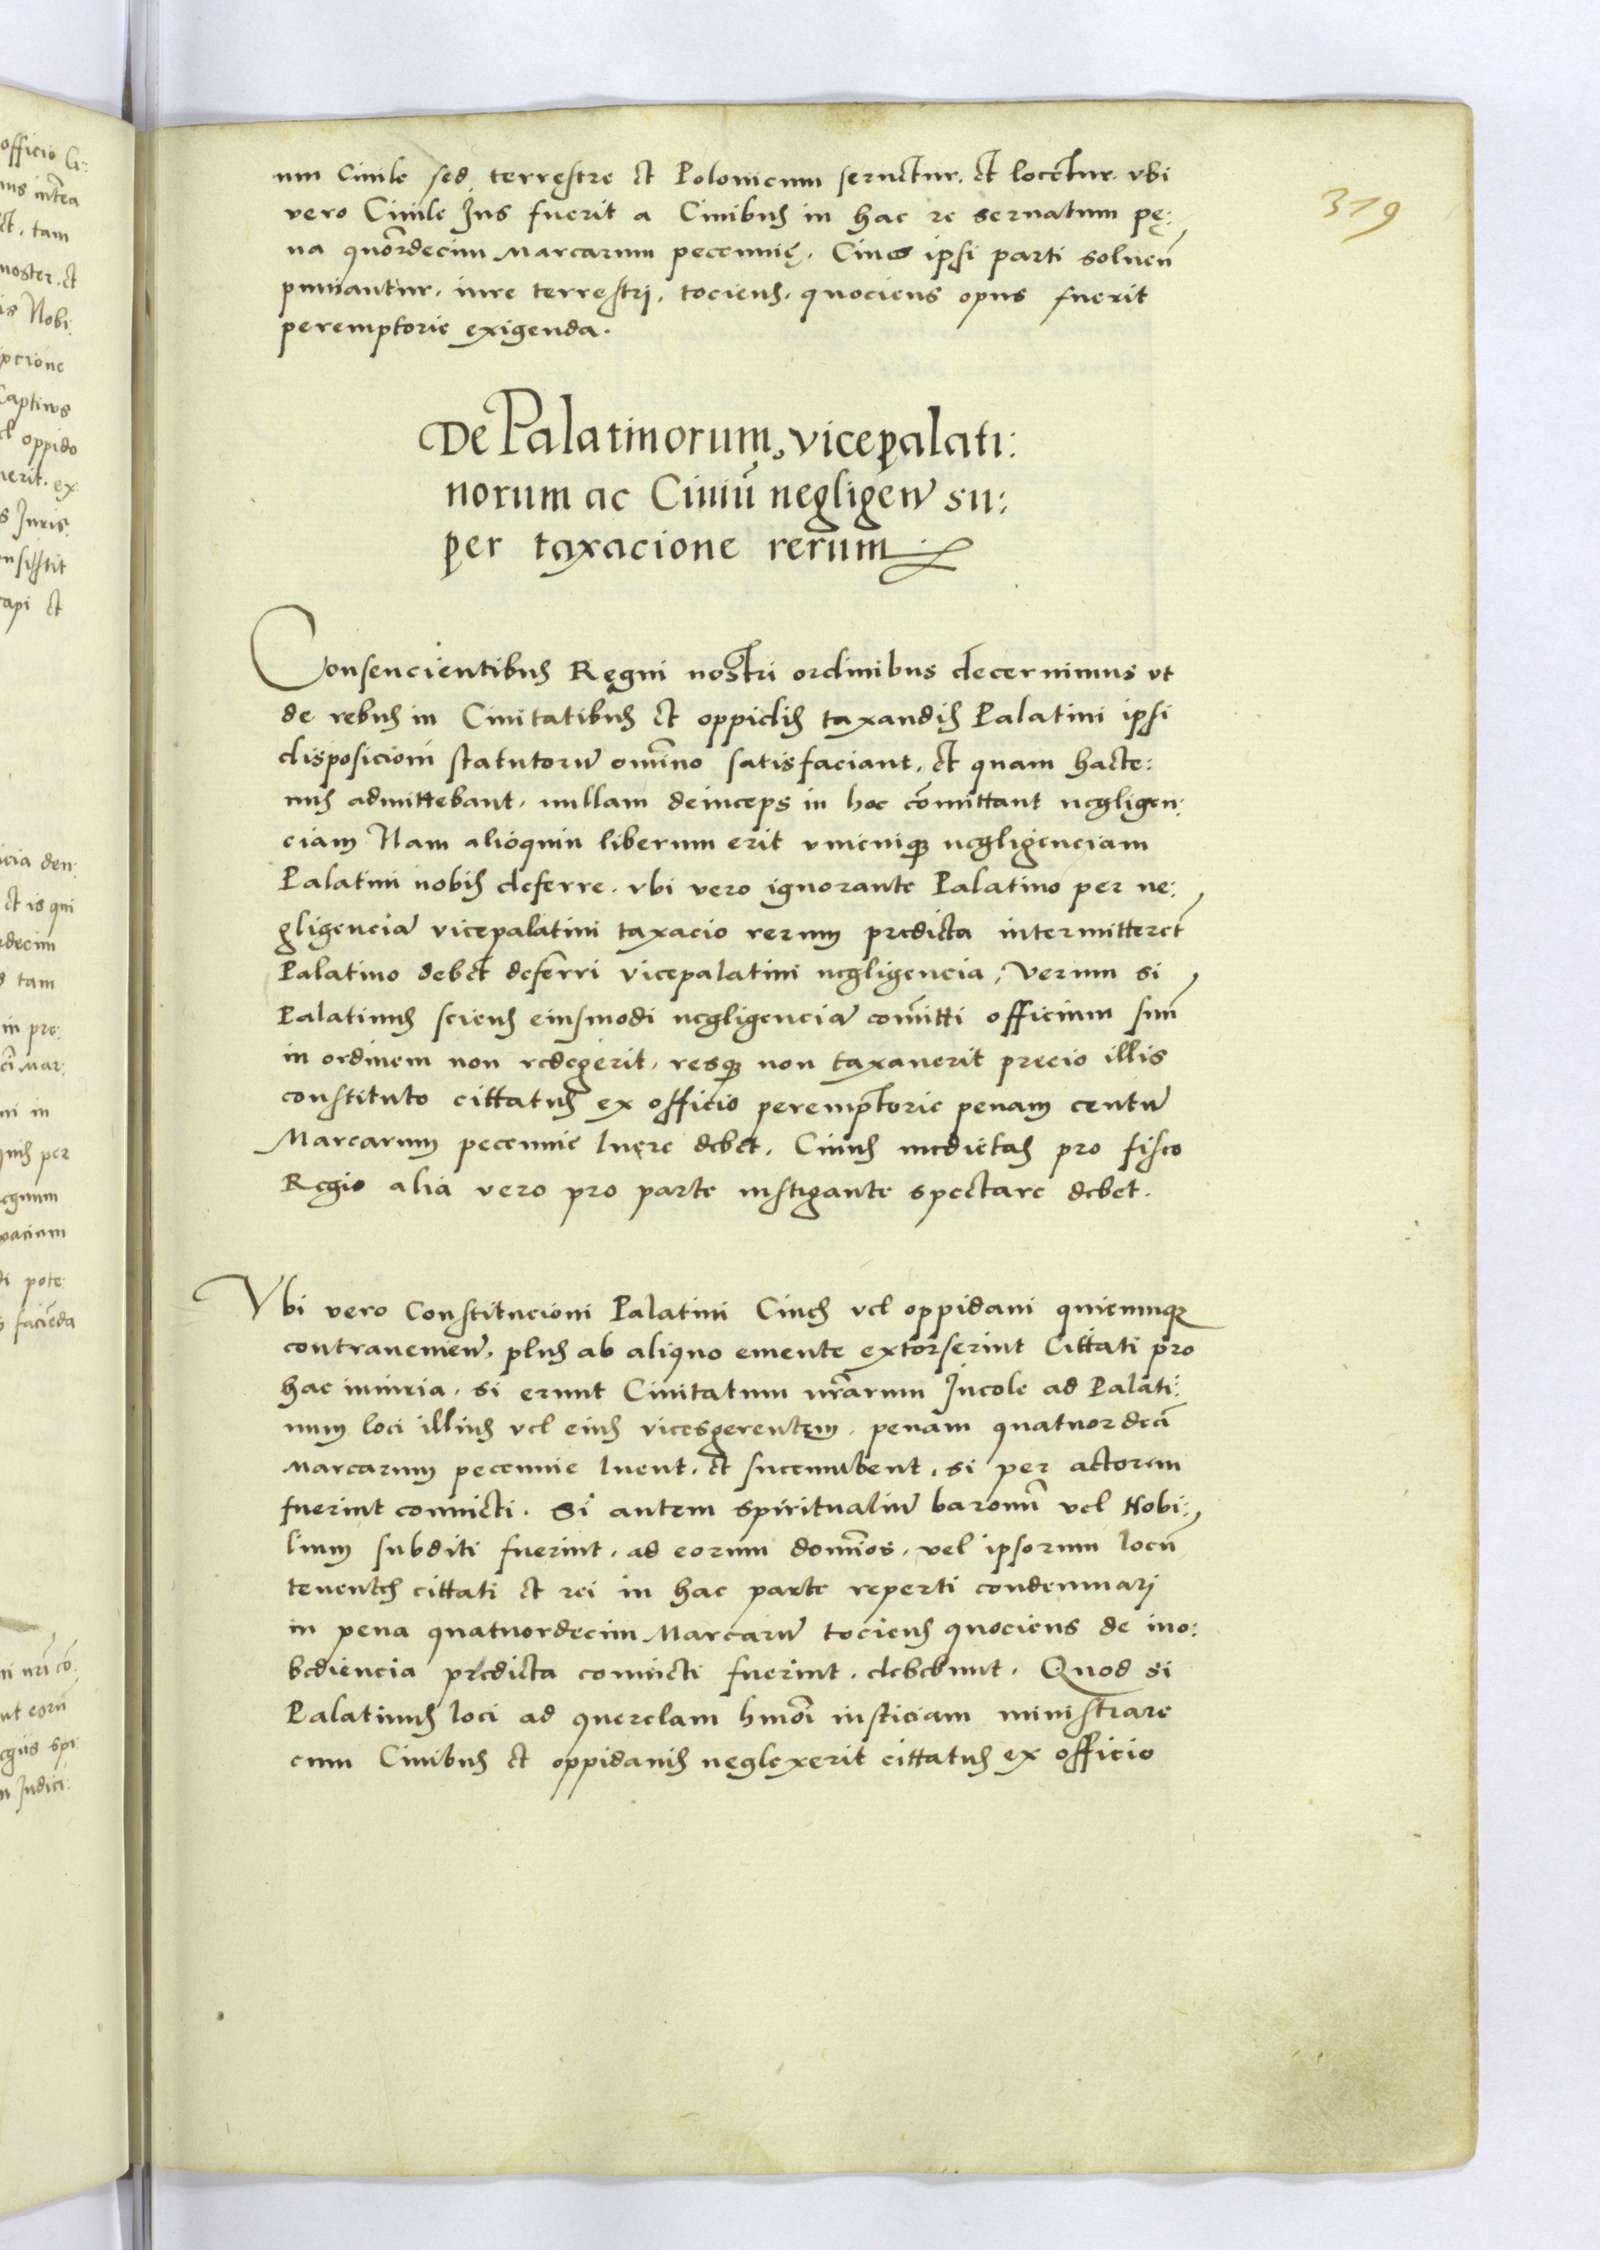 319
um Ciuile sed terrestre et Polonicum seruetur. et locetur. vbi
vero Ciuile Ius fuerit a Ciuibus in hac re seruatum pę:
na quõrdecim Marcarum pecunnię. Ciues ipsi parti soluen̄
puniantur. iure terrestri. tociens. quociens opus fuerit
peremptorie exigenda.
De Palatinorum, vicepalati:
norum ac Ciuiū negligen̄ su:
per taxacione rerum
Consencientibus Regni nostri ordinibus decernimus vt
de rebus in Ciuitatibus et oppidis taxandis Palatini ipsi
disposicioni statutorū omīno satisfaciant. et quam hacte:
nus admittebant. nullam deinceps in hoc cōmittant negligen:
ciam Nam alioquin liberum erit vnicuiqꝫ negligenciam
Palatini nobis deferre. vbi vero ignorante Palatino per ne:
gligenciā vicepalatini taxacio rerum predicta intermitteret
Palatino debet deferri vicepalatini negligencia, Verum si
Palatinus sciens eiusmodi negligenciā com̄itti officium suū
in ordinem non redegerit. resqꝫ non taxauerit precio illis
constituto cittatus ex officio peremptorie penam centū
Marcarum pecunnie luere debet. Cuius medietas pro fisco
Regio alia vero pro parte instigante spectare debet.
Vbi vero Constitucioni Palatini Ciues vel oppidani quicumqꝫ
contrauenien̄. plus ab aliquo emente extorserint Cittati pro
hac iniuria. si erunt Ciuitatum nr̄arum Incole ad Palati:
num loci illius vel eius vicesgerentem. penam quatuordecī
Marcarum pecunnie luent. et succumbent. si per actorem
fuerint conuicti. Si autem spiritualiū baronū vel Nobi:
lium subditi fuerint. ad eorum domīos. vel ipsorum locū
tenentes cittati et rei in hac parte reperti condemnari
in pena quatuordecim Marcarū tociens quociens de ino:
bediencia predicta conuicti fuerint. debebunt. Quod si
Palatinus loci ad querelam hmōi iusticiam ministrare
cum Ciuibus et oppidanis neglexerit cittatus ex officio